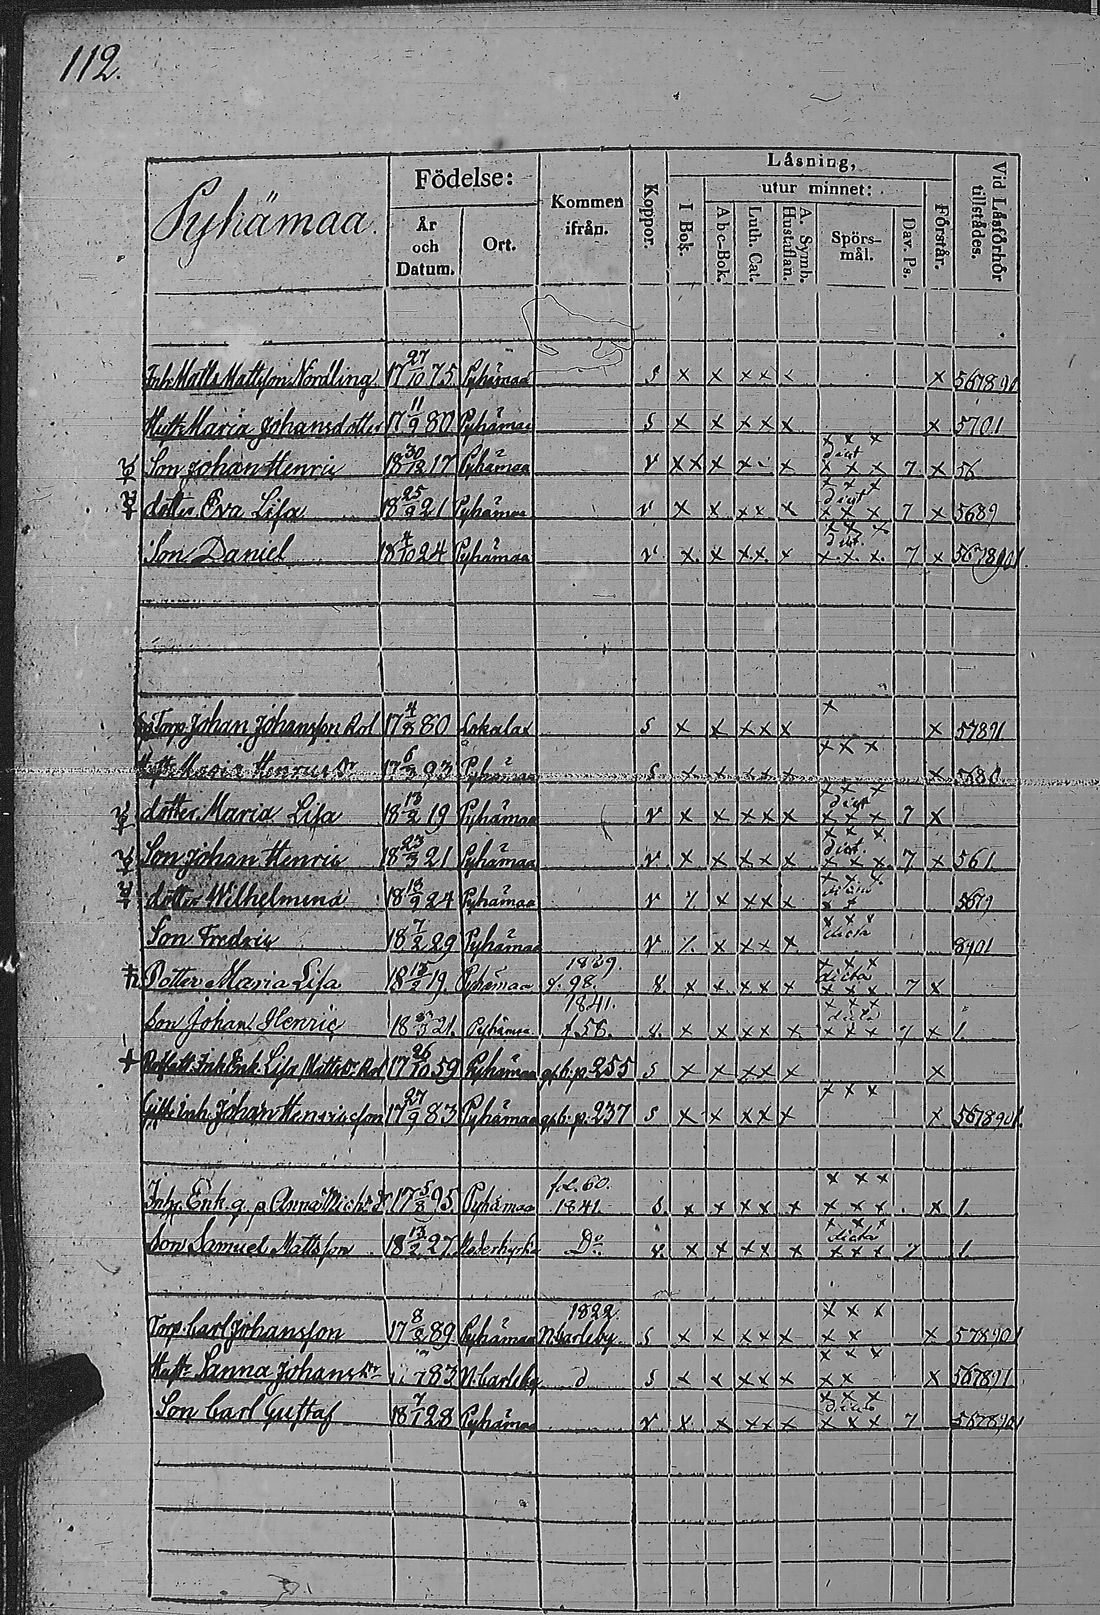 112.
Pyhämaa.
Födelse:
År och Datum.
Ort.
Kommen ifrån.
Koppor.
Läsning,
I Bok.
utur minnet:
Abc-Bok.
Luth. Cat.
A. Symb. Hustaflan.
Spörs-mål.
Dav. Ps.
Förstår.
Vid Läsförhör tillstädes.
Inh. Matts Mattsson Nordling 17 27/10 75 Pyhämaa s x x xx x x 567890
Hust. Maria Johansdotter 17 11/9 80 Pyhämaa s x x xx x x 5701
x x x
Son Johan Henric 18 30/12 17 Pyhämaa v xx x x x dict x x x 7 x 56
x x x
dotter Eva Lisa 18 25/9 21 Pyhämaa v x x xx x dict x x x 7 x 5689
x x x
Son Daniel 18 4/10 24 Pyhämaa v x x xx x dict x x x 7 x 5678901
Torp. Johan Johansson Rol 17 4/8 80 Lokalax s x x xx x x x 57891
x x x
Hust. Maria Henricsdr 17 6/3 93 Pyhämaa s x x xx x x 568
x x x
dotter Maria Lisa 18 13/2 19 Pyhämaa v x x xx x dict x x x 7 x
x x x
Son Johan Henric 18 23/3 21 Pyhämaa v x x xx x dict x x x 7 x 561
x x x
dotter Wilhelmina 18 18/9 24 Pyhämaa v x xx x x x 5679
x x x
Son Fredric 18 7/2 29 Pyhämaa v x xx x dicta 8901
1839.
x x x
Dotter Maria Lisa 18 19 Pyhämaa f. 98. x x xx x dicta x x x 7 x
1841.
x x x
Son Johan Henric 18 21 Pyhämaa f 58. x x xx x dicta x x x 7 x 1.
Enk. Lisa Mattsdr Rol 17 26/10 59 Pyhämaa p. 255 s x x xx x x
x x x
Inh. Johan Henricsson 17 27/9 83 Pyhämaa p. 237 s x x xx x x 5678901.
fol. 60.
x x x
Inh. Enk. Anna Michelsdr 17 5/8 95 Pyhämaa 1841. s x x xx x x x x x 1.
x x x
Son Samuel Mattsson 18 13/2 27 Moderkyrka Do v. x x xx x dicta x x x 7 1.
1822.
x x x
Torp. Carl Johansson 17 8/8 89 Pyhämaa N. Carleby s x x xx x x x x 578901
x x x
Hust. Sanna Johansdr 83 N. Carleby d s x x xx x x x x 567891
x x x
Son Carl Gustaf 18 7/1 28 Pyhämaa v x x xx x dicta x x x 7 5678901